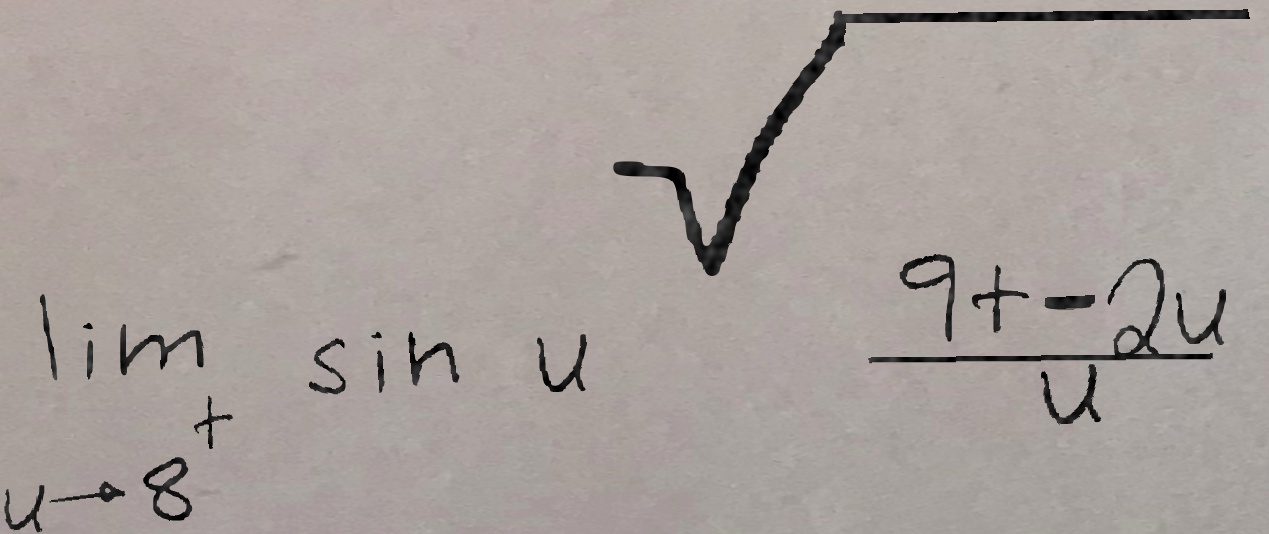 \lim_{u \to 8^+} \sin u \sqrt{\frac{9+-2u}{u}}